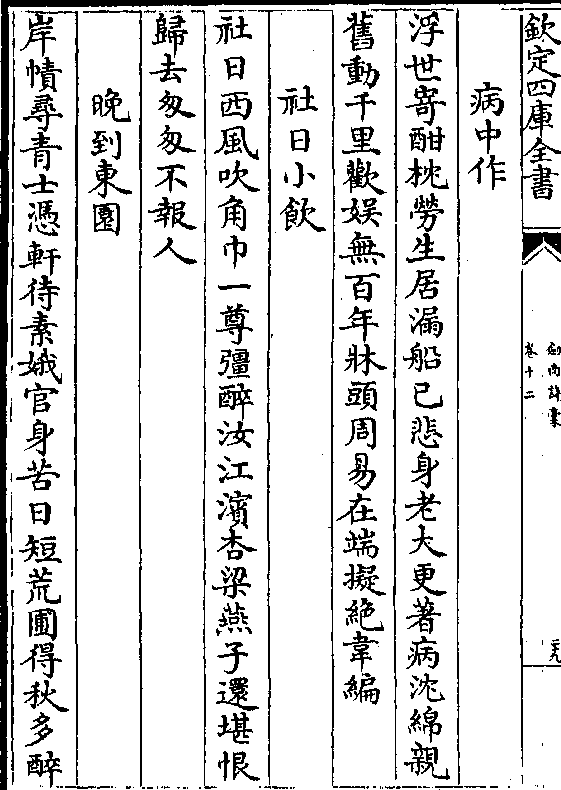 欽定四庫全書
劍南詩稾
卷十二
二十九
病中作
浮世嵜酣枕勞生居漏船已悲身老大更著病沈綿親
舊動千里歡娱無百年牀頭周易在端擬絶韋編
社日小飲
社日西風吹角巾一尊彊醉汝江濱杏梁燕子還堪恨
歸去匆匆不報人
晚到東園
岸幘尋青士憑軒待素娥官身苦日短荒圃得秋多醉